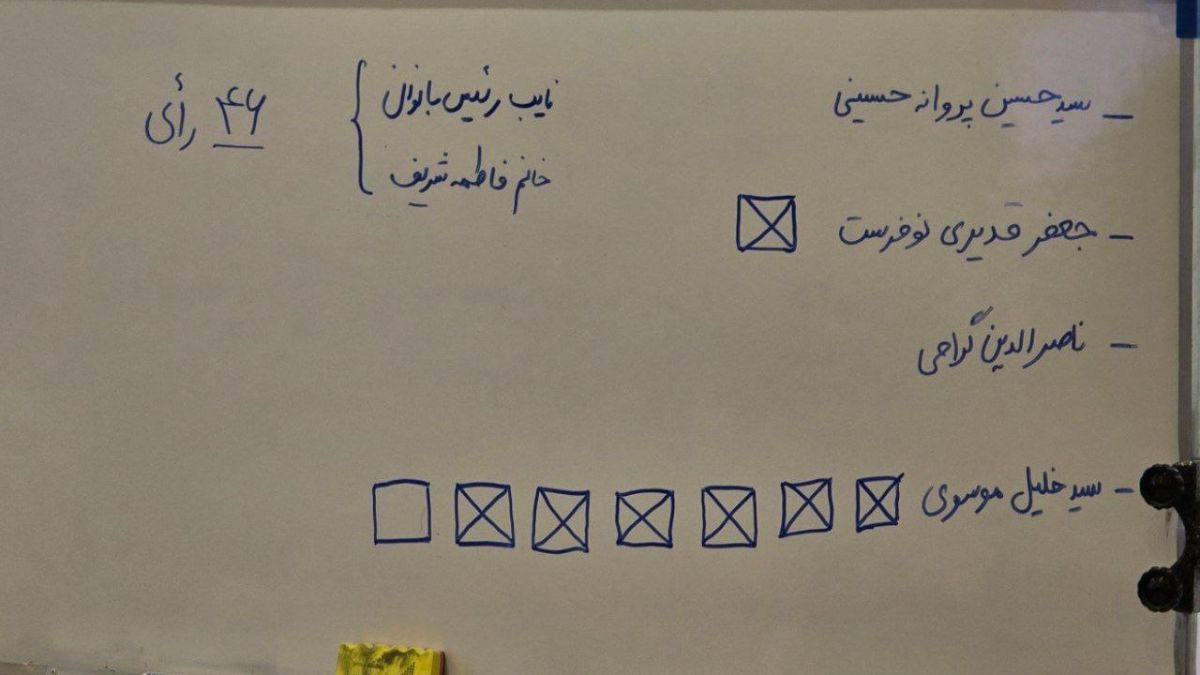 – سید حسین پروانه حسینی
– جعفر قدیری نوفرست
– ناصرالدین گرامی
– سید خلیل موسوی
نایب رئیس بانوان
خانم فاطمه شریف
۴۶ رأی